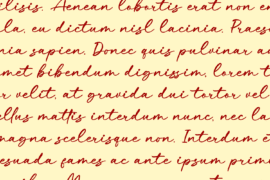 ilisis. Aenean lobortis erat non e
lla, eu dictum nisl lacinia. Praes
nia sapien. Donec quis pulvinar a
met bibendum dignissim, lorem t
r velit, at gravida dui tortor vel
ellus mattis interdum nunc, nec la
magna scelerisque non. Interdum e
esuada fames ac ante ipsum prim